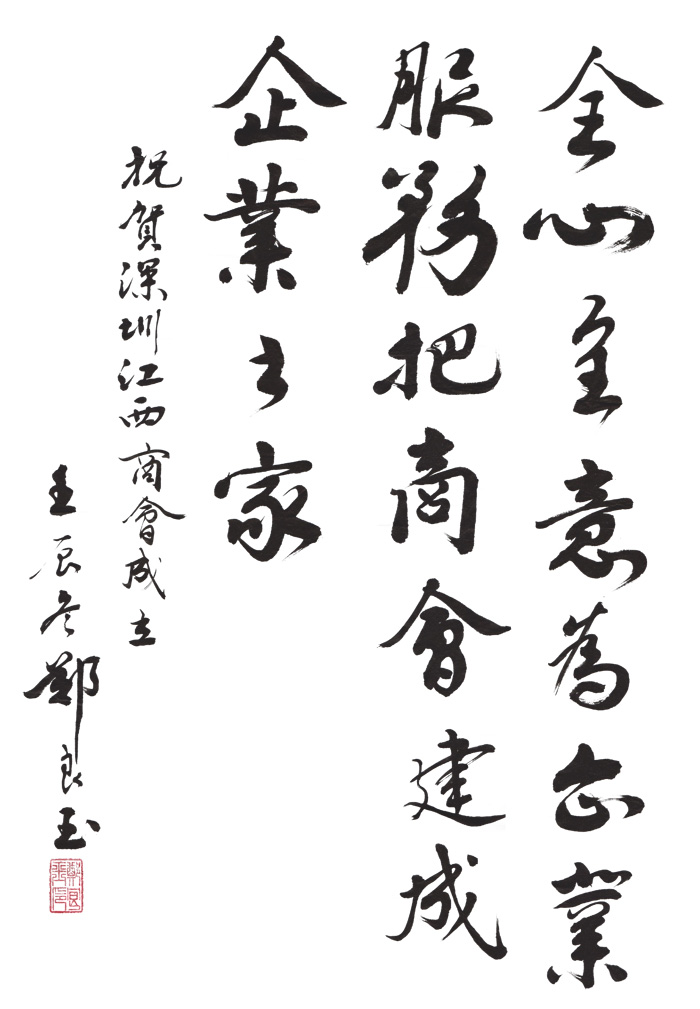 全心全意為企業
服務把商會建成
企業之家
祝賀深圳江西商會成立
壬辰冬鄭良玉
鄭良玉印